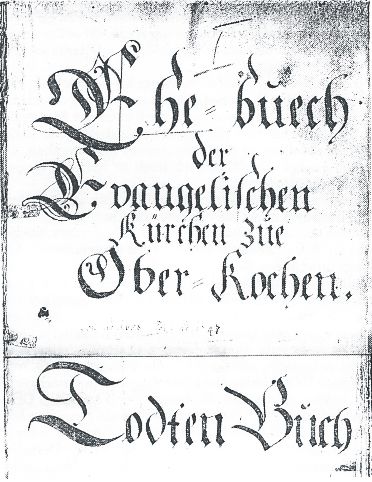 I
Ehe=buech
der
Evangelischen
Kürchen zue
Ober=Kochen.
Todten Buch